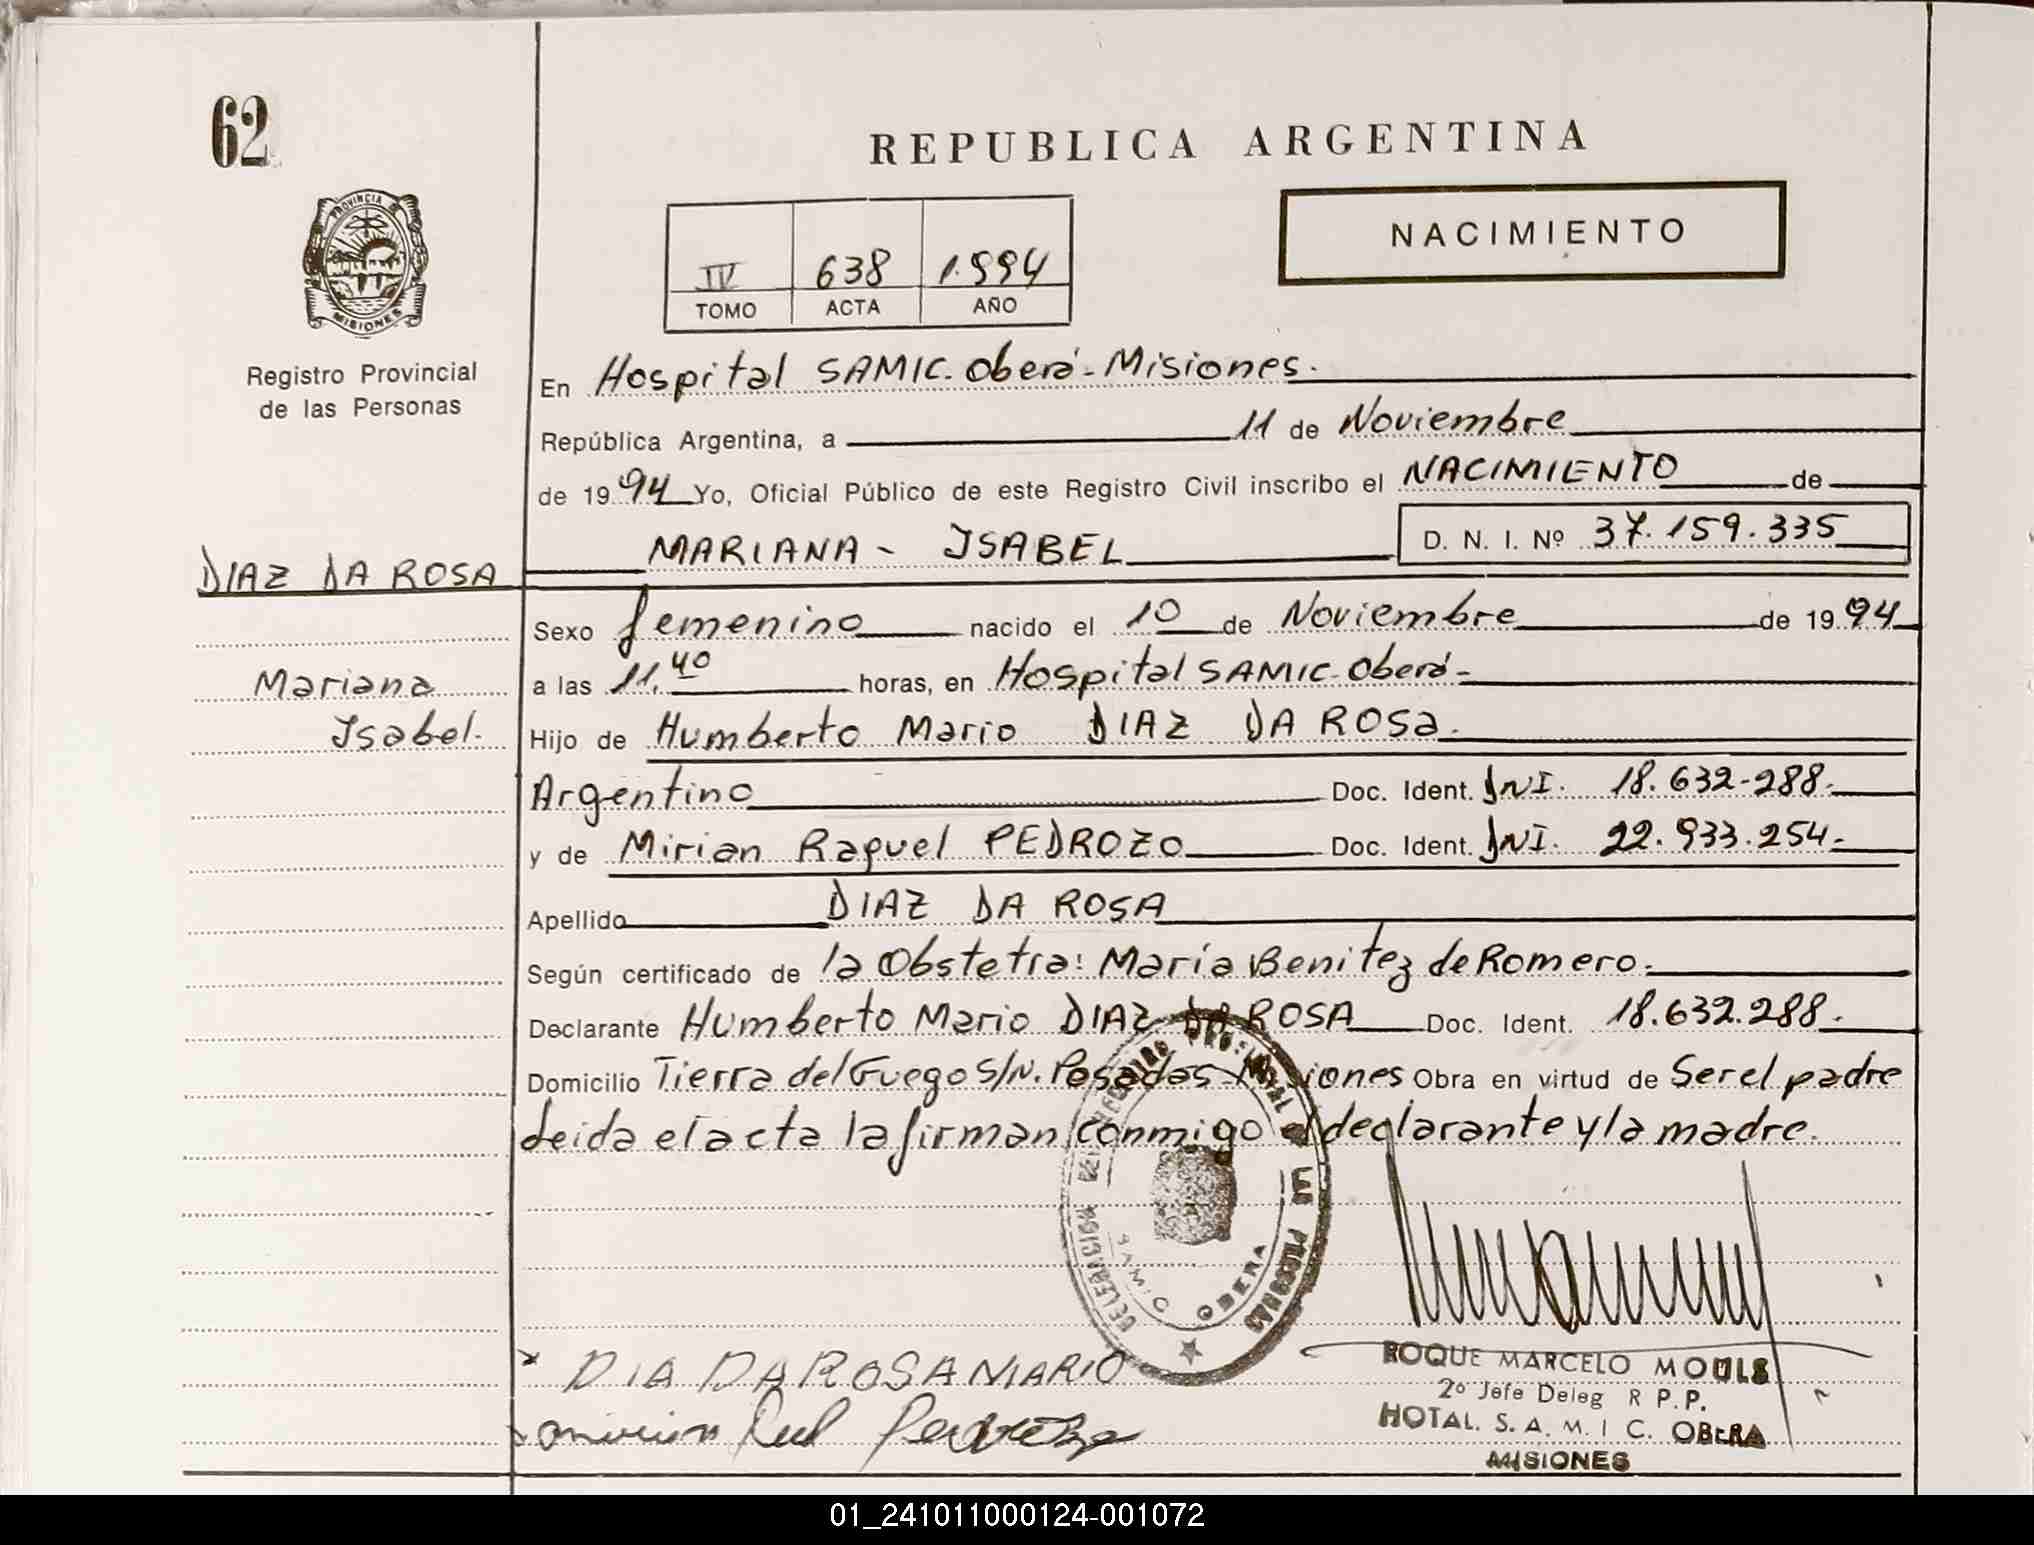 62
REPUBLICA ARGENTINA
NACIMIENTO
IV 638 1.994
TOMO ACTA AÑO
PROVINCIA DE
MISIONES
Registro Provincial
de las Personas
En Hospital SAMIC. Oberá - Misiones.
República Argentina, a 11 de Noviembre
de 1994 Yo, Oficial Público de este Registro Civil inscribo el NACIMIENTO de
MARIANA - ISABEL D. N. I. Nº 37.159.335
DIAZ DA ROSA
Sexo femenino nacido el 10 de Noviembre de 1994
Mariana
Isabel.
a las 11.40 horas, en Hospital SAMIC. Oberá -
Hijo de Humberto Mario DIAZ DA ROSA.
Argentino Doc. Ident. DNI. 18.632-288.
y de Mirian Raquel PEDROZO Doc. Ident. DNI. 22.933.254.
Apellido DIAZ DA ROSA
Según certificado de la Obstetra: María Benitez de Romero.
Declarante Humberto Mario DIAZ DA ROSA Doc. Ident. 18.632.288.
Domicilio Tierra del Fuego S/N. Posadas - Misiones Obra en virtud de Ser el padre
leida el acta la firman conmigo el declarante y la madre.
DELEGACION DEL REGISTRO PROVINCIAL DE LAS PERSONAS
SAMIC OBERA
DIA DA ROSA MARIO
ROQUE MARCELO MOULS
2º Jefe Deleg R P.P.
HOTAL. S. A. M. I C. OBERA
MISIONES
01_241011000124-001072